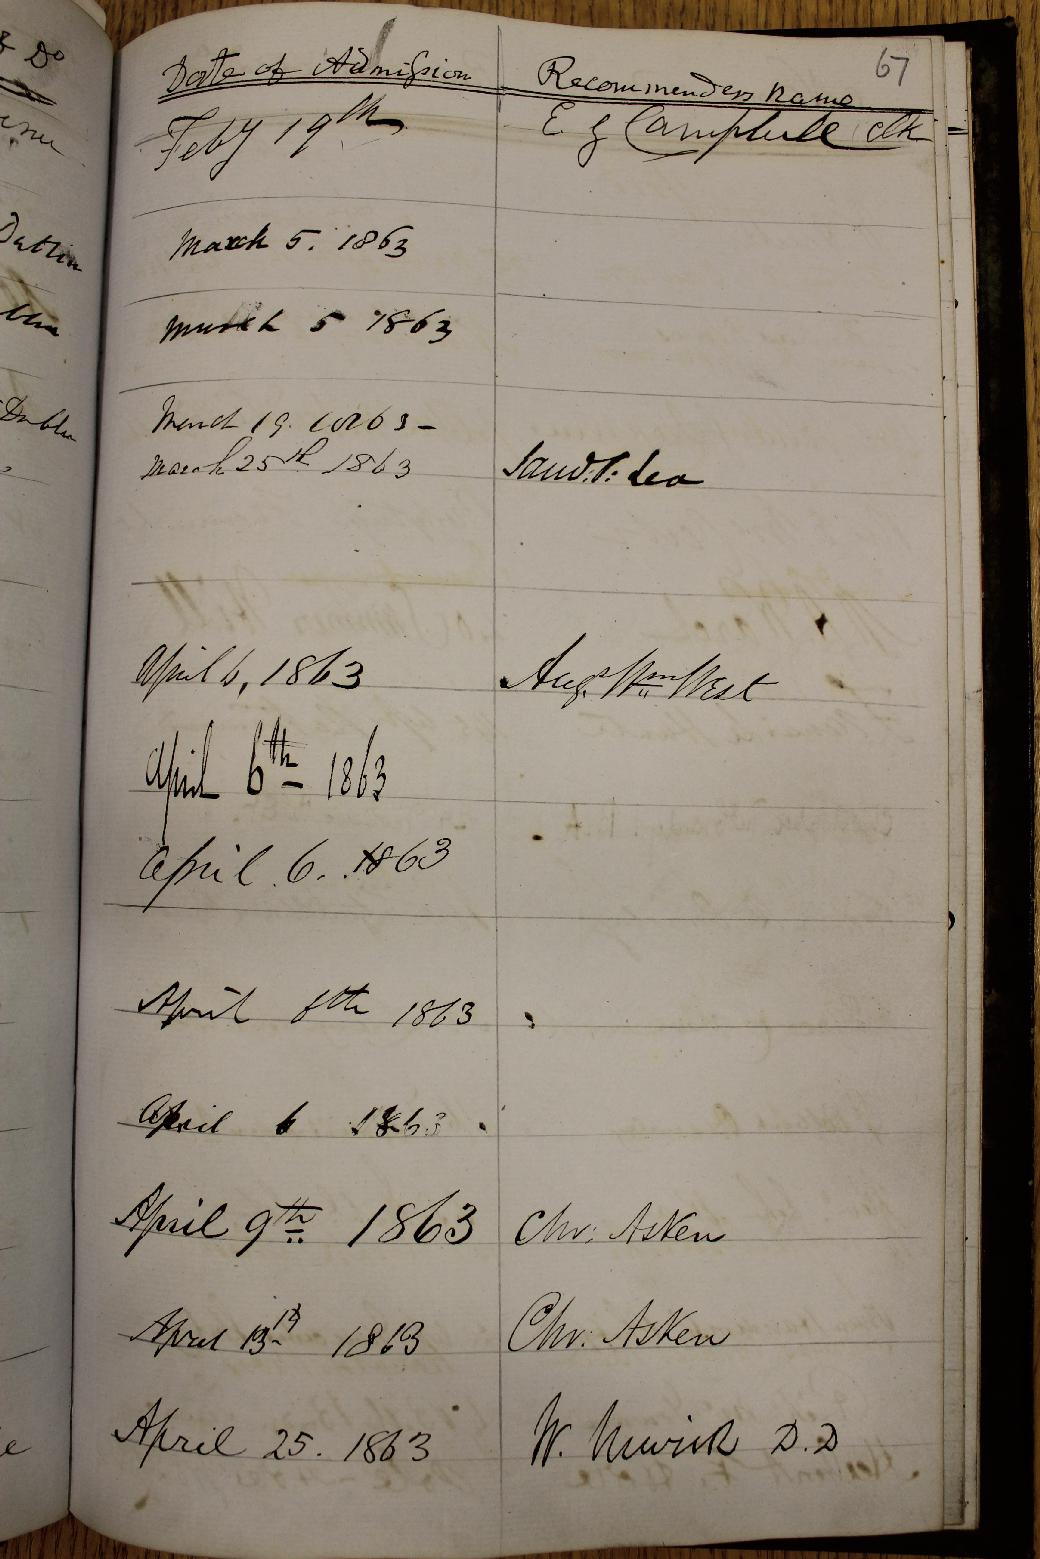 & Do
Dublin
Dublin
67
Date of Admission Recommenders name
Feby 19th E G Campbell clk
March 5. 1863
March 5 1863
March 19. 1863 -
March 25th 1863
April 6, 1863 Augs Wm West
April 6th 1863
April 6. 1863
April 6th 1863
April 6 1863
April 9th 1863 Chr: Asken
April 13th 1863 Chr: Asken
April 25. 1863 W. D.D